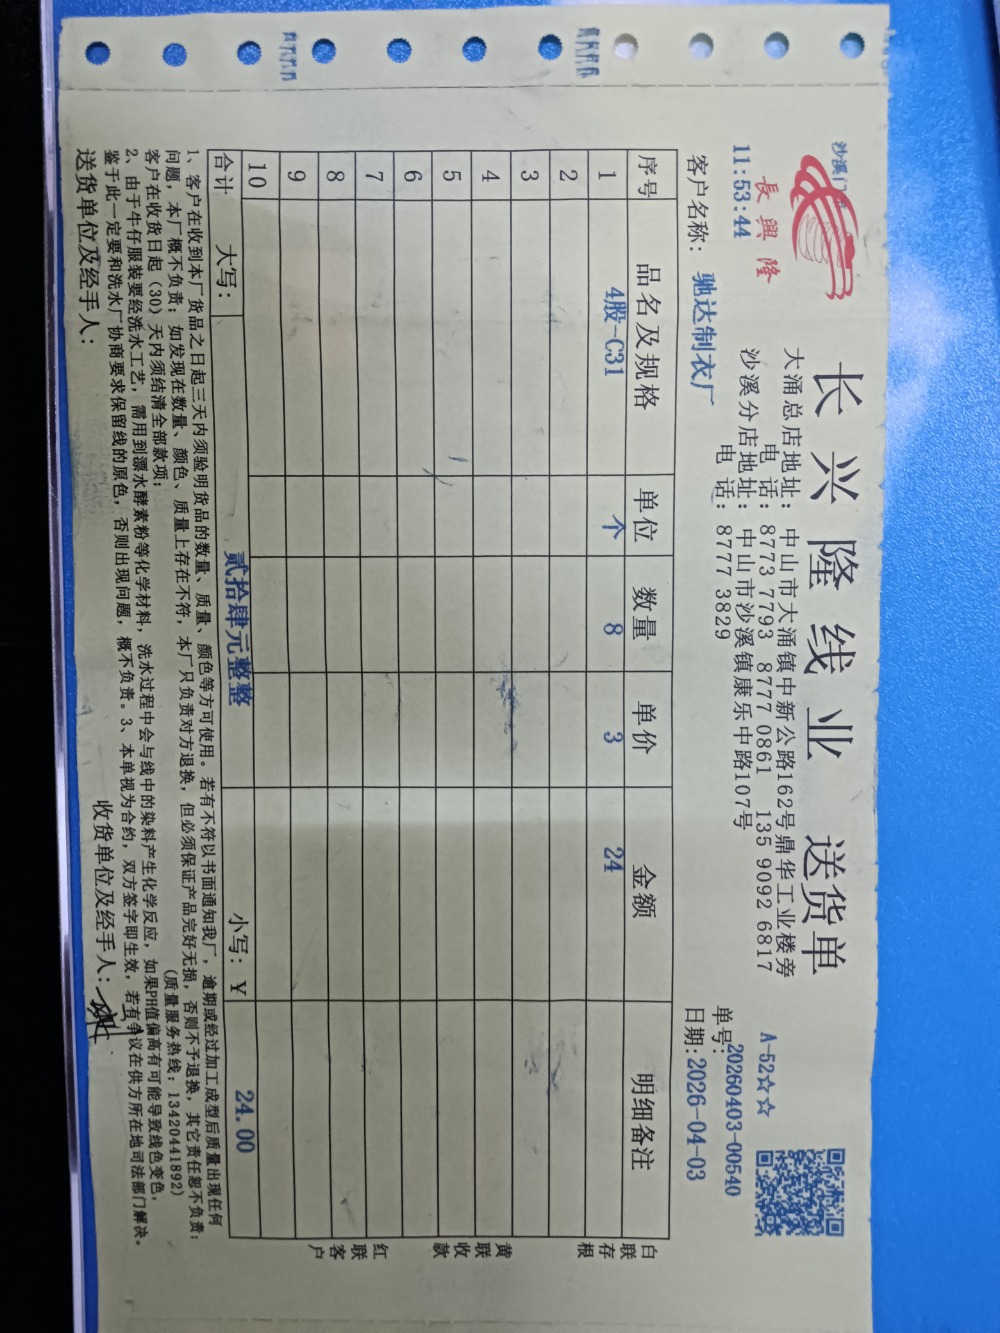 沙溪门
長興隆
11:53:44
长兴隆线业 送货单
大涌总店地址：中山市大涌镇中新公路162号鼎华工业楼旁
电 话：8773 7793 8777 0861 135 9092 6817
沙溪分店地址：中山市沙溪镇康乐中路107号
电 话：8777 3829
A-52☆☆
单号：20260403-00540
客户名称：驰达制衣厂 日期：2026-04-03
序号 品名及规格 单位 数量 单价 金额 明细备注
1 4股-C31 个 8 3 24
2
3
4
5
6
7
8
9
10
合计 大写：贰拾肆元整整 小写：¥ 24.00
白联存根
黄联收款
红联客户
1、客户在收到本厂货品之日起三天内须验明货品的数量、质量、颜色等方可使用。若有不符以书面通知我厂，逾期或经过加工成型后质量出现任何
问题，本厂概不负责；如发现在数量、颜色、质量上存在不符，本厂只负责对方退换，但必须保证产品完好无损，否则不予退换，其它责任恕不负责；
客户在收货日起（30）天内须结清全部款项； （质量服务热线：13420441892）
2、由于牛仔服装要经洗水工艺，需用到漂水酵素粉等化学材料，洗水过程中会与线中的染料产生化学反应，如果PH值偏高有可能导致线色变色，
鉴于此一定要和洗水厂协商要求保留线的原色，否则出现问题，概不负责。3、本单视为合约，双方签字即生效，若有争议在供方所在地司法部门解决。
送货单位及经手人： 收货单位及经手人：